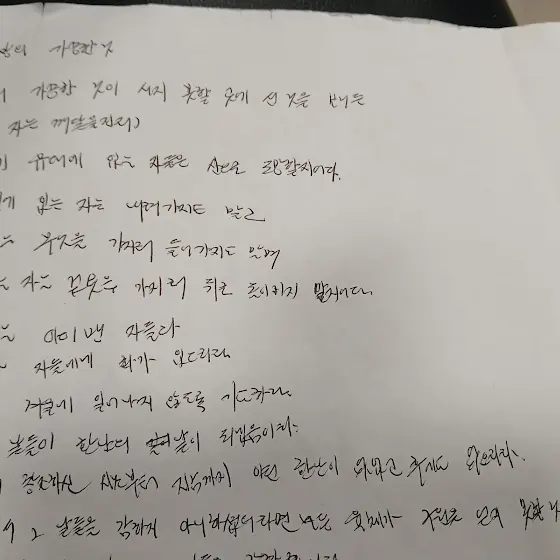 가증한 것
가증한 것이 서지 못할 곳에 선 것을 보
자는 깨달을진저)
유대에 있는 자들은 산으로 도망할지어다.
있는 자는 내려가지도 말고
무엇을 가지러 들어가지도 말며
자는 겉옷을 가지러 뒤로 돌이키지 말지어다.
아이 밴 자들과
자들에게 화가 있으리라
겨울에 일어나지 않도록 기도하라
날들이 환난의 날이 되겠음이라
창조하신 부터 지금까지 이런 환난이 없었고 후에도 없으리라.
그 날들을 감하지 아니하셨더라면 모든 육체가 구원을 얻지 못할